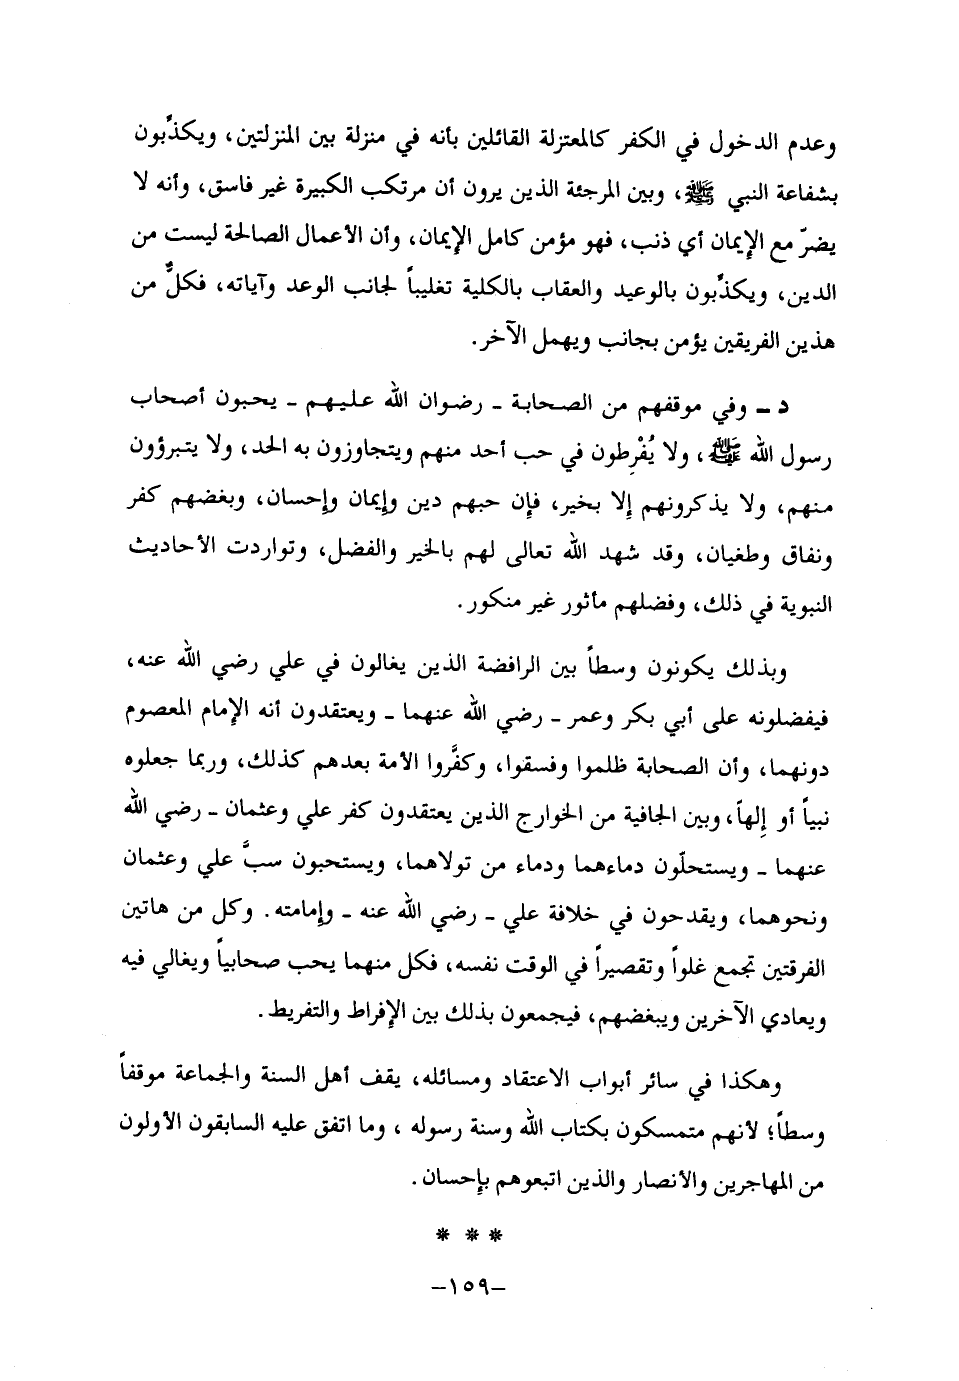 وعدم الدخول في الكفر كالمعتزلة القائلين بأنه في منزلة بين المنزلتين، ويكذِّبون
بشفاعة النبي ﷺ، وبين المرجئة الذين يرون أن مرتكب الكبيرة غير فاسق، وأنه لا
يضرّ مع الإيمان أي ذنب، فهو مؤمن كامل الإيمان، وأن الأعمال الصالحة ليست من
الدين، ويكذِّبون بالوعيد والعقاب بالكلية تغليباً لجانب الوعد وآياته، فكلٌّ من
هذين الفريقين يؤمن بجانب ويهمل الآخر.
د ـ وفي موقفهم من الصحابة ـ رضوان الله عليهم ـ يحبون أصحاب
رسول الله ﷺ، ولا يُفْرِطون في حب أحد منهم ويتجاوزون به الحد، ولا يتبرؤون
منهم، ولا يذكرونهم إلا بخير، فإن حبهم دين وإيمان وإحسان، وبغضهم كفر
ونفاق وطغيان، وقد شهد الله تعالى لهم بالخير والفضل، وتواردت الأحاديث
النبوية في ذلك، وفضلهم مأثور غير منكور.
وبذلك يكونون وسطاً بين الرافضة الذين يغالون في علي رضي الله عنه،
فيفضلونه على أبي بكر وعمر ـ رضي الله عنهما ـ ويعتقدون أنه الإمام المعصوم
دونهما، وأن الصحابة ظلموا وفسقوا، وكفَّروا الأمة بعدهم كذلك، وربما جعلوه
نبياً أو إِلهاً، وبين الجافية من الخوارج الذين يعتقدون كفر علي وعثمان ـ رضي الله
عنهما ـ ويستحلّون دماءهما ودماء من تولاهما، ويستحبون سبَّ علي وعثمان
ونحوهما، ويقدحون في خلافة علي ـ رضي الله عنه ـ وإمامته. وكل من هاتين
الفرقتين تجمع غلواً وتقصيراً في الوقت نفسه، فكل منهما يحب صحابياً ويغالي فيه
ويعادي الآخرين ويبغضهم، فيجمعون بذلك بين الإفراط والتفريط.
وهكذا في سائر أبواب الاعتقاد ومسائله، يقف أهل السنة والجماعة موقفاً
وسطاً؛ لأنهم متمسكون بكتاب الله وسنة رسوله ، وما اتفق عليه السابقون الأولون
من المهاجرين والأنصار والذين اتبعوهم بإحسان.
* * *
-١٥٩-